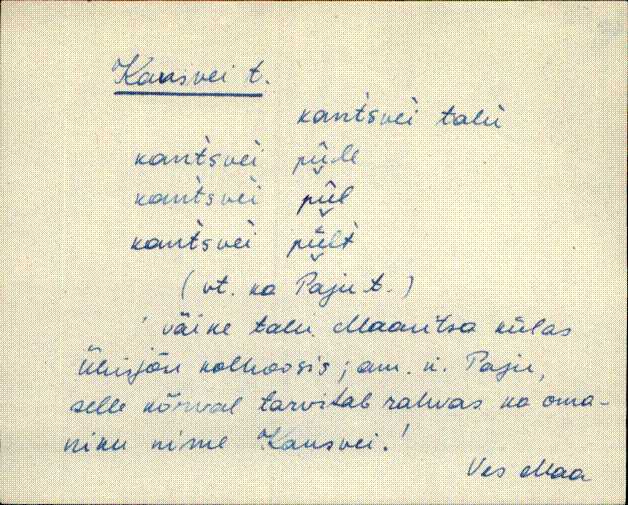 Kansvei t.
kantsvei talu
kantsvei püле
kantsvei pül
kantsvei pült
(vt. ka Paju t.)
'väike talu Maaritsa külas
Ühisjõu kolhoosis; am. n. Paju,
selle kõrval tarvitab rahvas ka oma-
niku nime Kansvei.'
Ves Maa